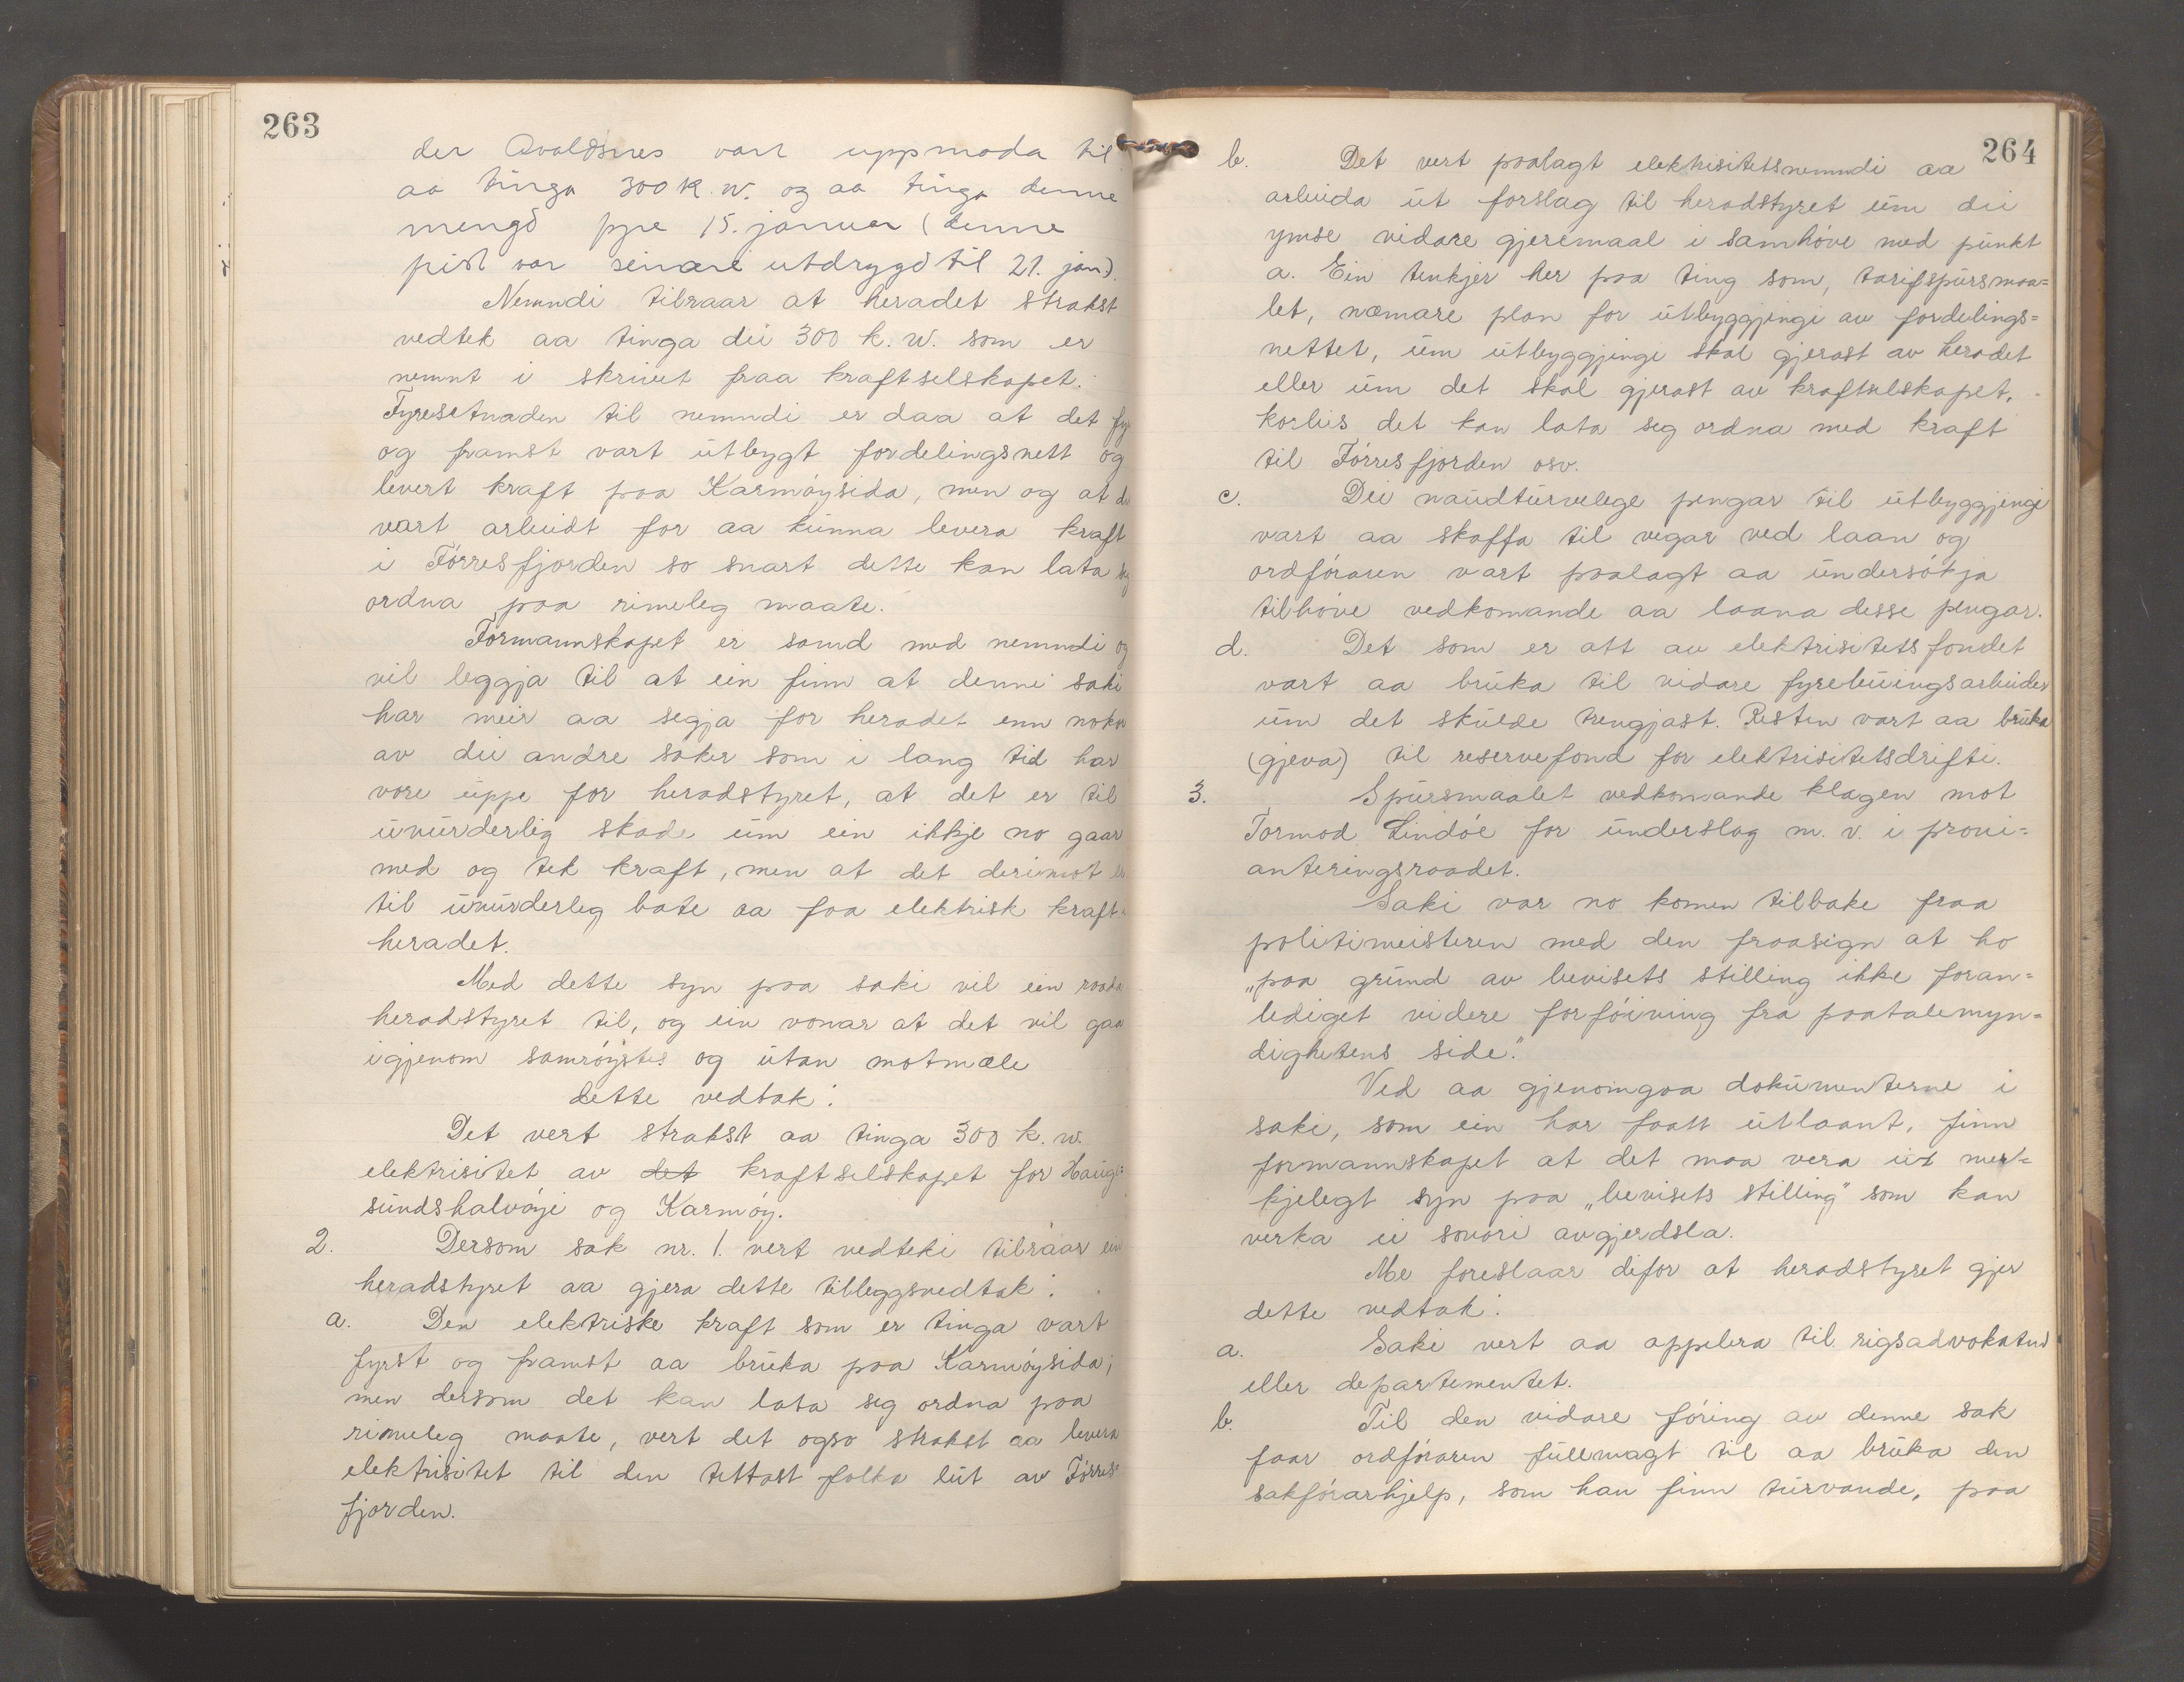 263
der Avaldsnes vart uppmoda til
aa tinga 300 k.w. og aa tinga denne
mengd fyre 15. januar (denne
frist var seinare utdrygd til 21. jan).
Nemndi tilraar at heradet strakst
vedtek aa tinga dei 300 k.w. som er
nemnt i skrivet fraa kraftselskapet.
Fyresetnaden til nemndi er daa at det fy
og framst vart utbygt fordelingsnett og
levert kraft paa Karmøysida, men og at d
vart arbeidt for aa kunna levera kraft
i Førresfjorden so snart dette kan lata
ordna paa rimeleg maate.
Formannskapet er samd med nemndi og
vil leggja til at ein finn at denne saki
har meir aa segja for heradet enn noko
av dei andre saker som i lang tid har
vore uppe for heradstyret, at det er til
uvurderlig skade um ein ikkje no gaar
med og tek kraft, men at det derimot e
til uvurderleg bate aa faa elektrisk kraft
heradet.
Med dette syn paa saki vil ein raada
heradstyret til, og ein vonar at det vil gaa
igjenom samrøystes og utan motmæle
dette vedtak:
Det vert strakst aa tinga 300 k.w.
elektrisitet av det kraftselskapet for Haug-
sundshalvøyi og Karmøy.
2. Dersom sak nr. 1. vert vedteki tilraar ein
heradstyret aa gjera dette tilleggsvedtak:
a. Den elektriske kraft som er tinga vart
fyrst og framst aa bruka paa Karmøysida;
men dersom det kan lata seg ordna paa
rimeleg maate, vert det ogso strakst aa levera
elektrisitet til den tettast folka lut av Førres-
fjorden.
264
b. Det vert paalagt elektrisitetsnemndi aa
arbeida ut forslag til heradstyret um dei
ymse vidare gjeremaal i samhøve med punkt
a. Ein tenkjer her paa ting som, tarifspursmaa=
let, næmare plan for utbyggjingi av fordelings=
nettet, um utbyggjingi skal gjerast av heradet
eller um det skal gjerast av kraftselskapet,
korleis det kan lata seg ordna med kraft
til Førresfjorden osv.
c. Dei naudturvelege pengar til utbyggjingi
vart aa skaffa til vegar ved laan og
ordføraren vart paalagt aa undersøkja
tilhøve vedkomande aa laana desse pengar.
d. Det som er att av elektrisitetsfondet
vart aa bruka til vidare fyrebuingsarbeider
um det skulde trengjast. Resten vart aa bruka
(gjeva) til reservefond for elektrisitetsdrifti.
3. Spursmaalet vedkomande klagen mot
Tormod Lindøe for underslag m.v. i provi=
anteringsraadet.
Saki var no komen tilbake fraa
politimeisteren med den fraasign at ho
„paa grund av bevisets stilling ikke foran=
lediget videre forføining fra paatalemyn=
dighetens side."
Ved aa gjenomgaa dokumenterne i
saki, som ein har faatt utlaant, finn
formannskapet at det maa vera eit mer=
kjelegt syn paa „bevisets stilling" som kan
verka ei sovori avgjerdsla.
Me foreslaar difor at heradstyret gjer
dette vedtak:
a. Saki vert aa appelera til rigsadvokaten
eller departementet.
b. Til den vidare føring av denne sak
faar ordføraren fullmagt til aa bruka den
sakførarhjelp, som han finn turvande, paa